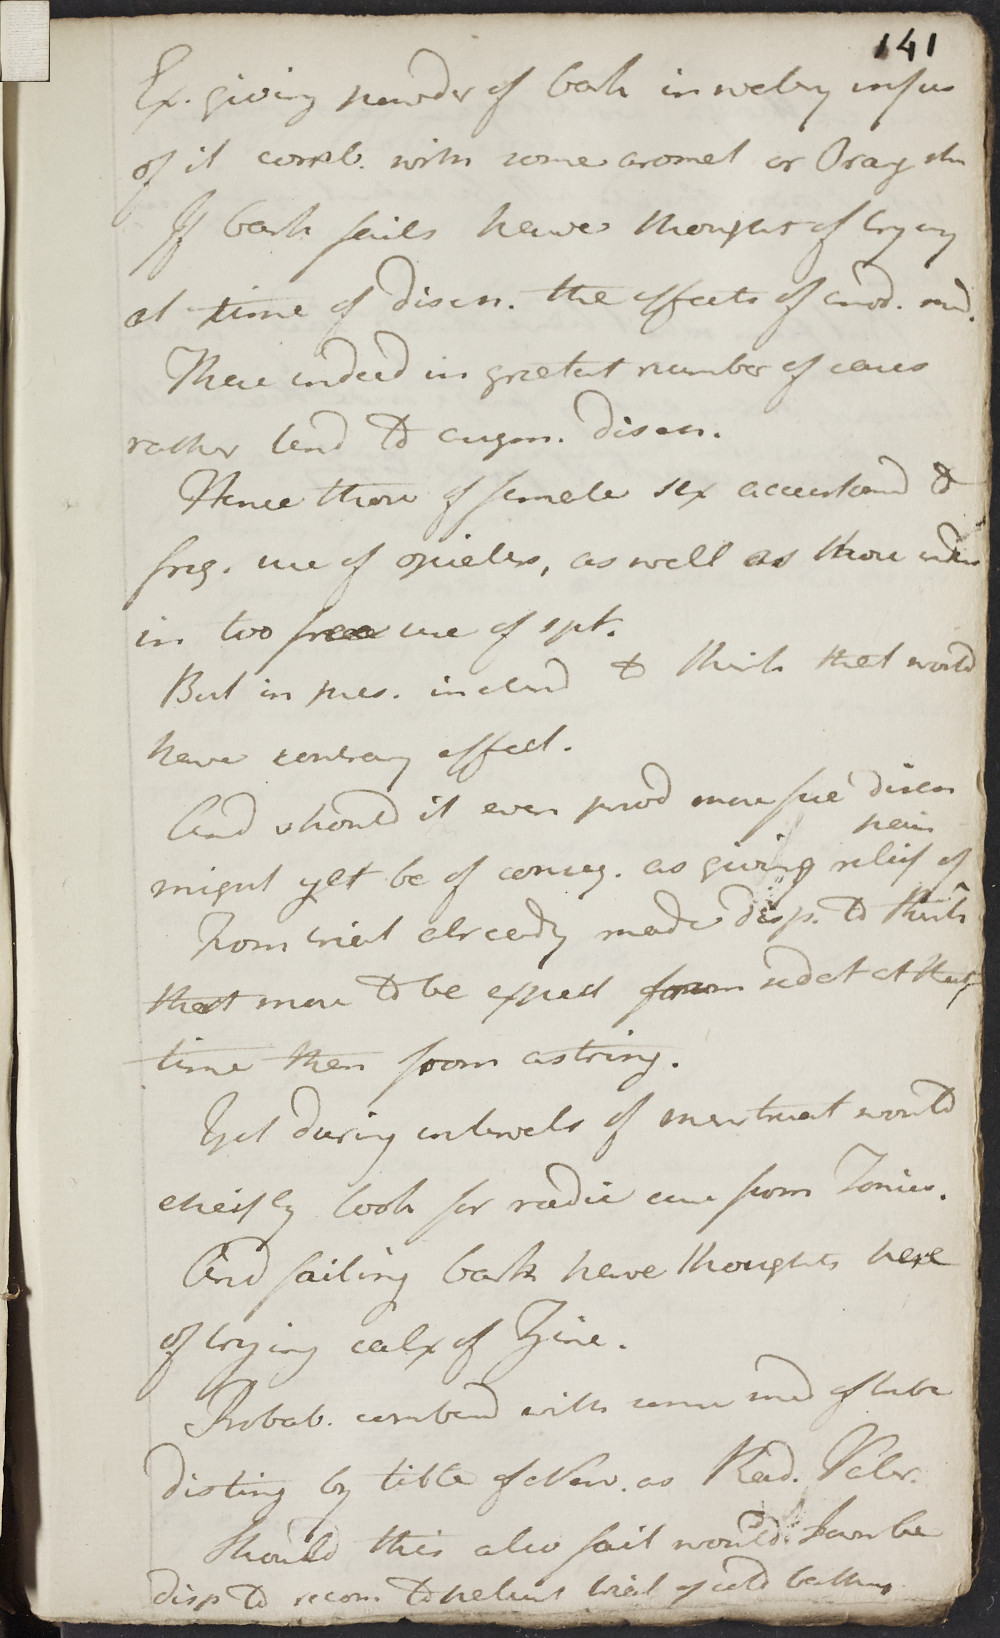 141
Ex. giving powder of bark in watery infus
of it comb. with some aromat or
If bark fails have thoughts of trying
at time of disch. the effects of anod. med.
These indeed in greatest number of cases
rather tend to augm. disch.
Hence those of female sex accustomed to
freq. use of opiates, as well as those
in too free use of spt.
But in pres. inclined to think that would
have contrary effect.
And should it even prod more free disch
pain
might yet be of conseq. as giving relief of
From trial already made disp. to think
that more to be expect from sedat at that
time then from astring.
Yet during intervals of menstruat would
cheifly look for radic cure from Tonics.
And failing bark have thoughts here
of trying calx of Zinc.
Probab. combind with some med of tribe
disting by title of Nerv. as Rad. Valer.
Should this also fail would I own be
disp to recom. to patient trial of cold bathing